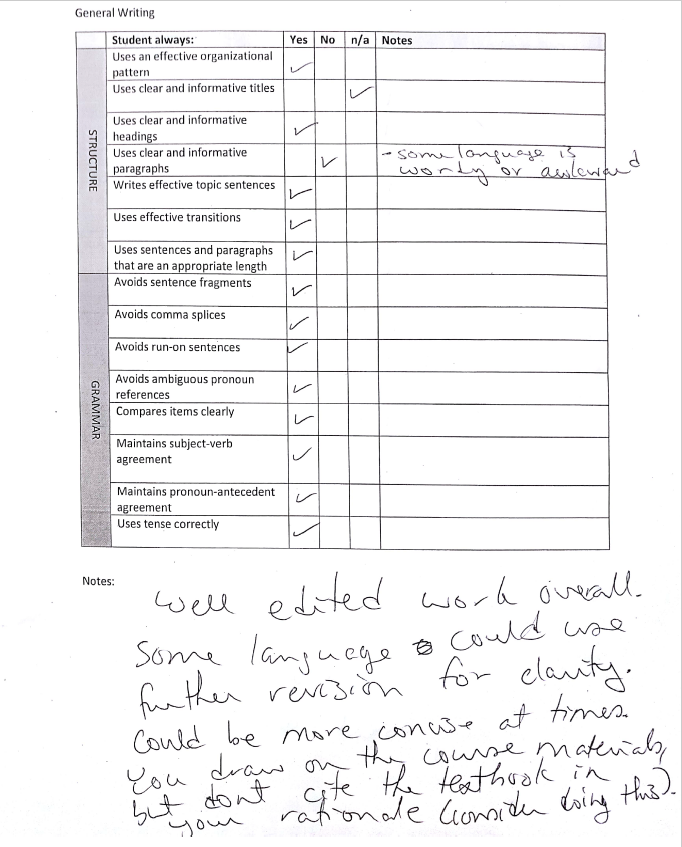 General Writing
Student always: Yes No n/a Notes
STRUCTURE
Uses an effective organizational
pattern ✓
Uses clear and informative titles ✓
Uses clear and informative
headings ✓
Uses clear and informative - some language is
paragraphs ✓ wordy or awkward
Writes effective topic sentences ✓
Uses effective transitions ✓
Uses sentences and paragraphs
that are an appropriate length ✓
GRAMMAR
Avoids sentence fragments ✓
Avoids comma splices ✓
Avoids run-on sentences ✓
Avoids ambiguous pronoun
references ✓
Compares items clearly ✓
Maintains subject-verb
agreement ✓
Maintains pronoun-antecedent
agreement ✓
Uses tense correctly ✓
Notes:
Well edited work overall.
Some language could use
further revision for clarity.
Could be more concise at times.
You draw on the course materials,
but dont cite the textbook in
your rationale (consider doing this).